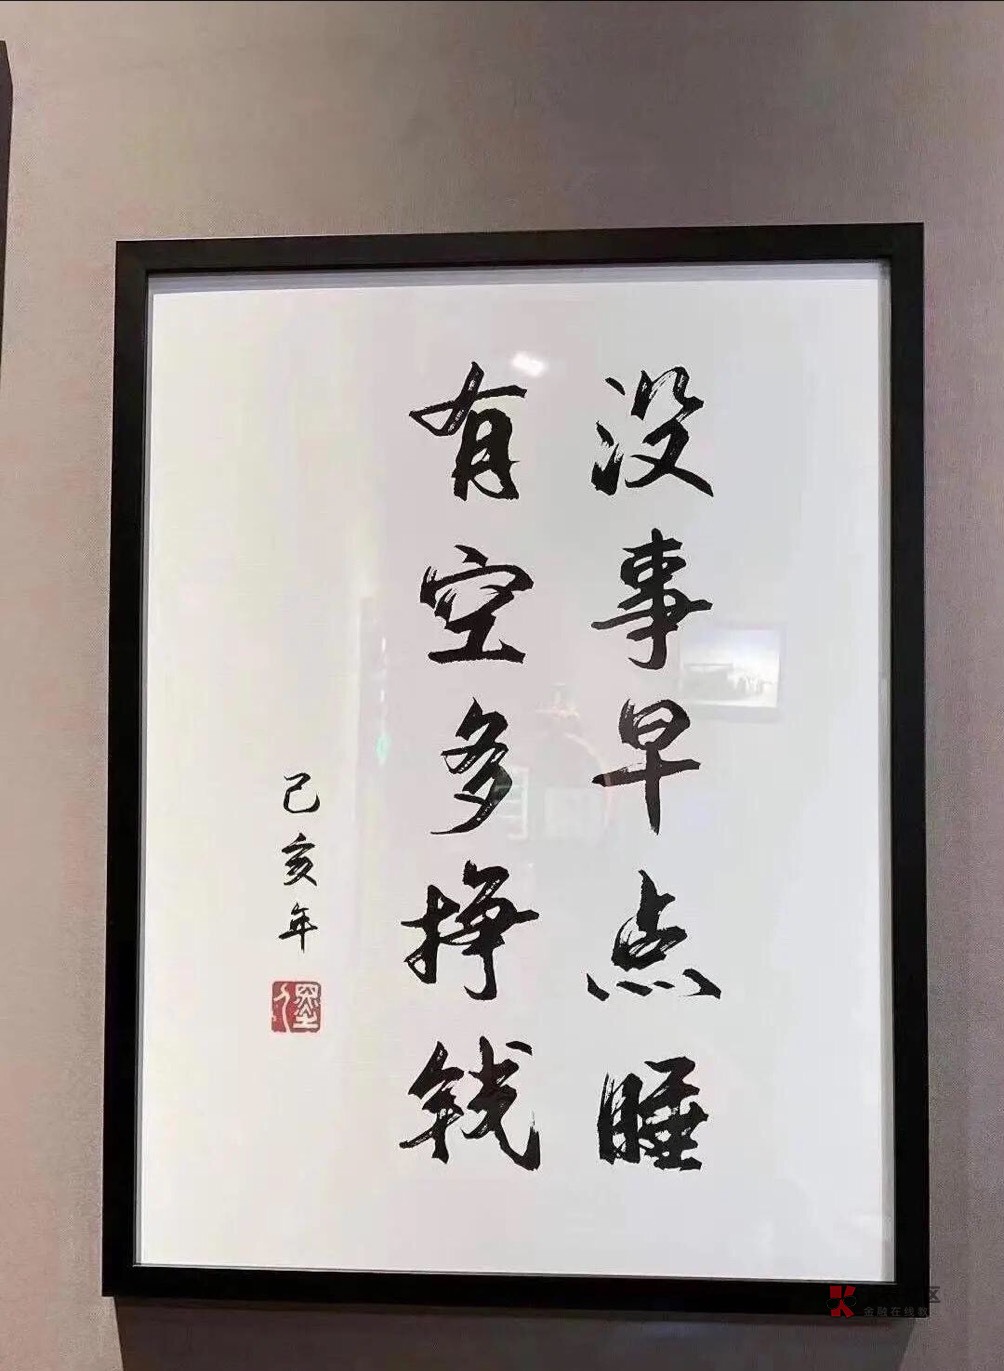 没事早点睡
有空多挣钱
己亥年
金融在线教